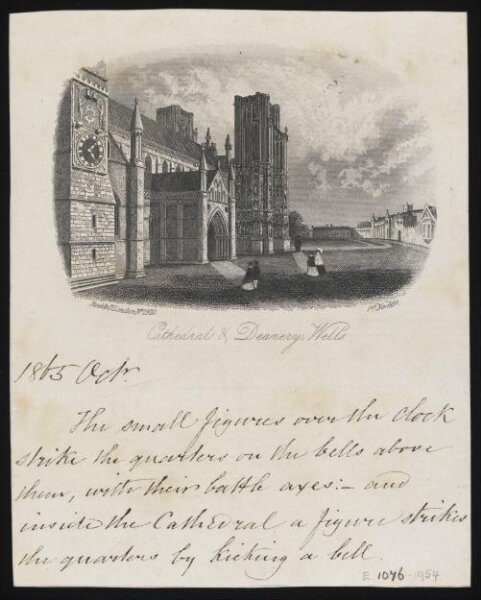 Cathedral & Deanery, Wells
1865 Octr.
The small figures over the clock
strike the quarters on the bells above
them, with their battle axes:– and
inside the Cathedral a figure strikes
the quarters by kicking a bell.
E. 1076-1954